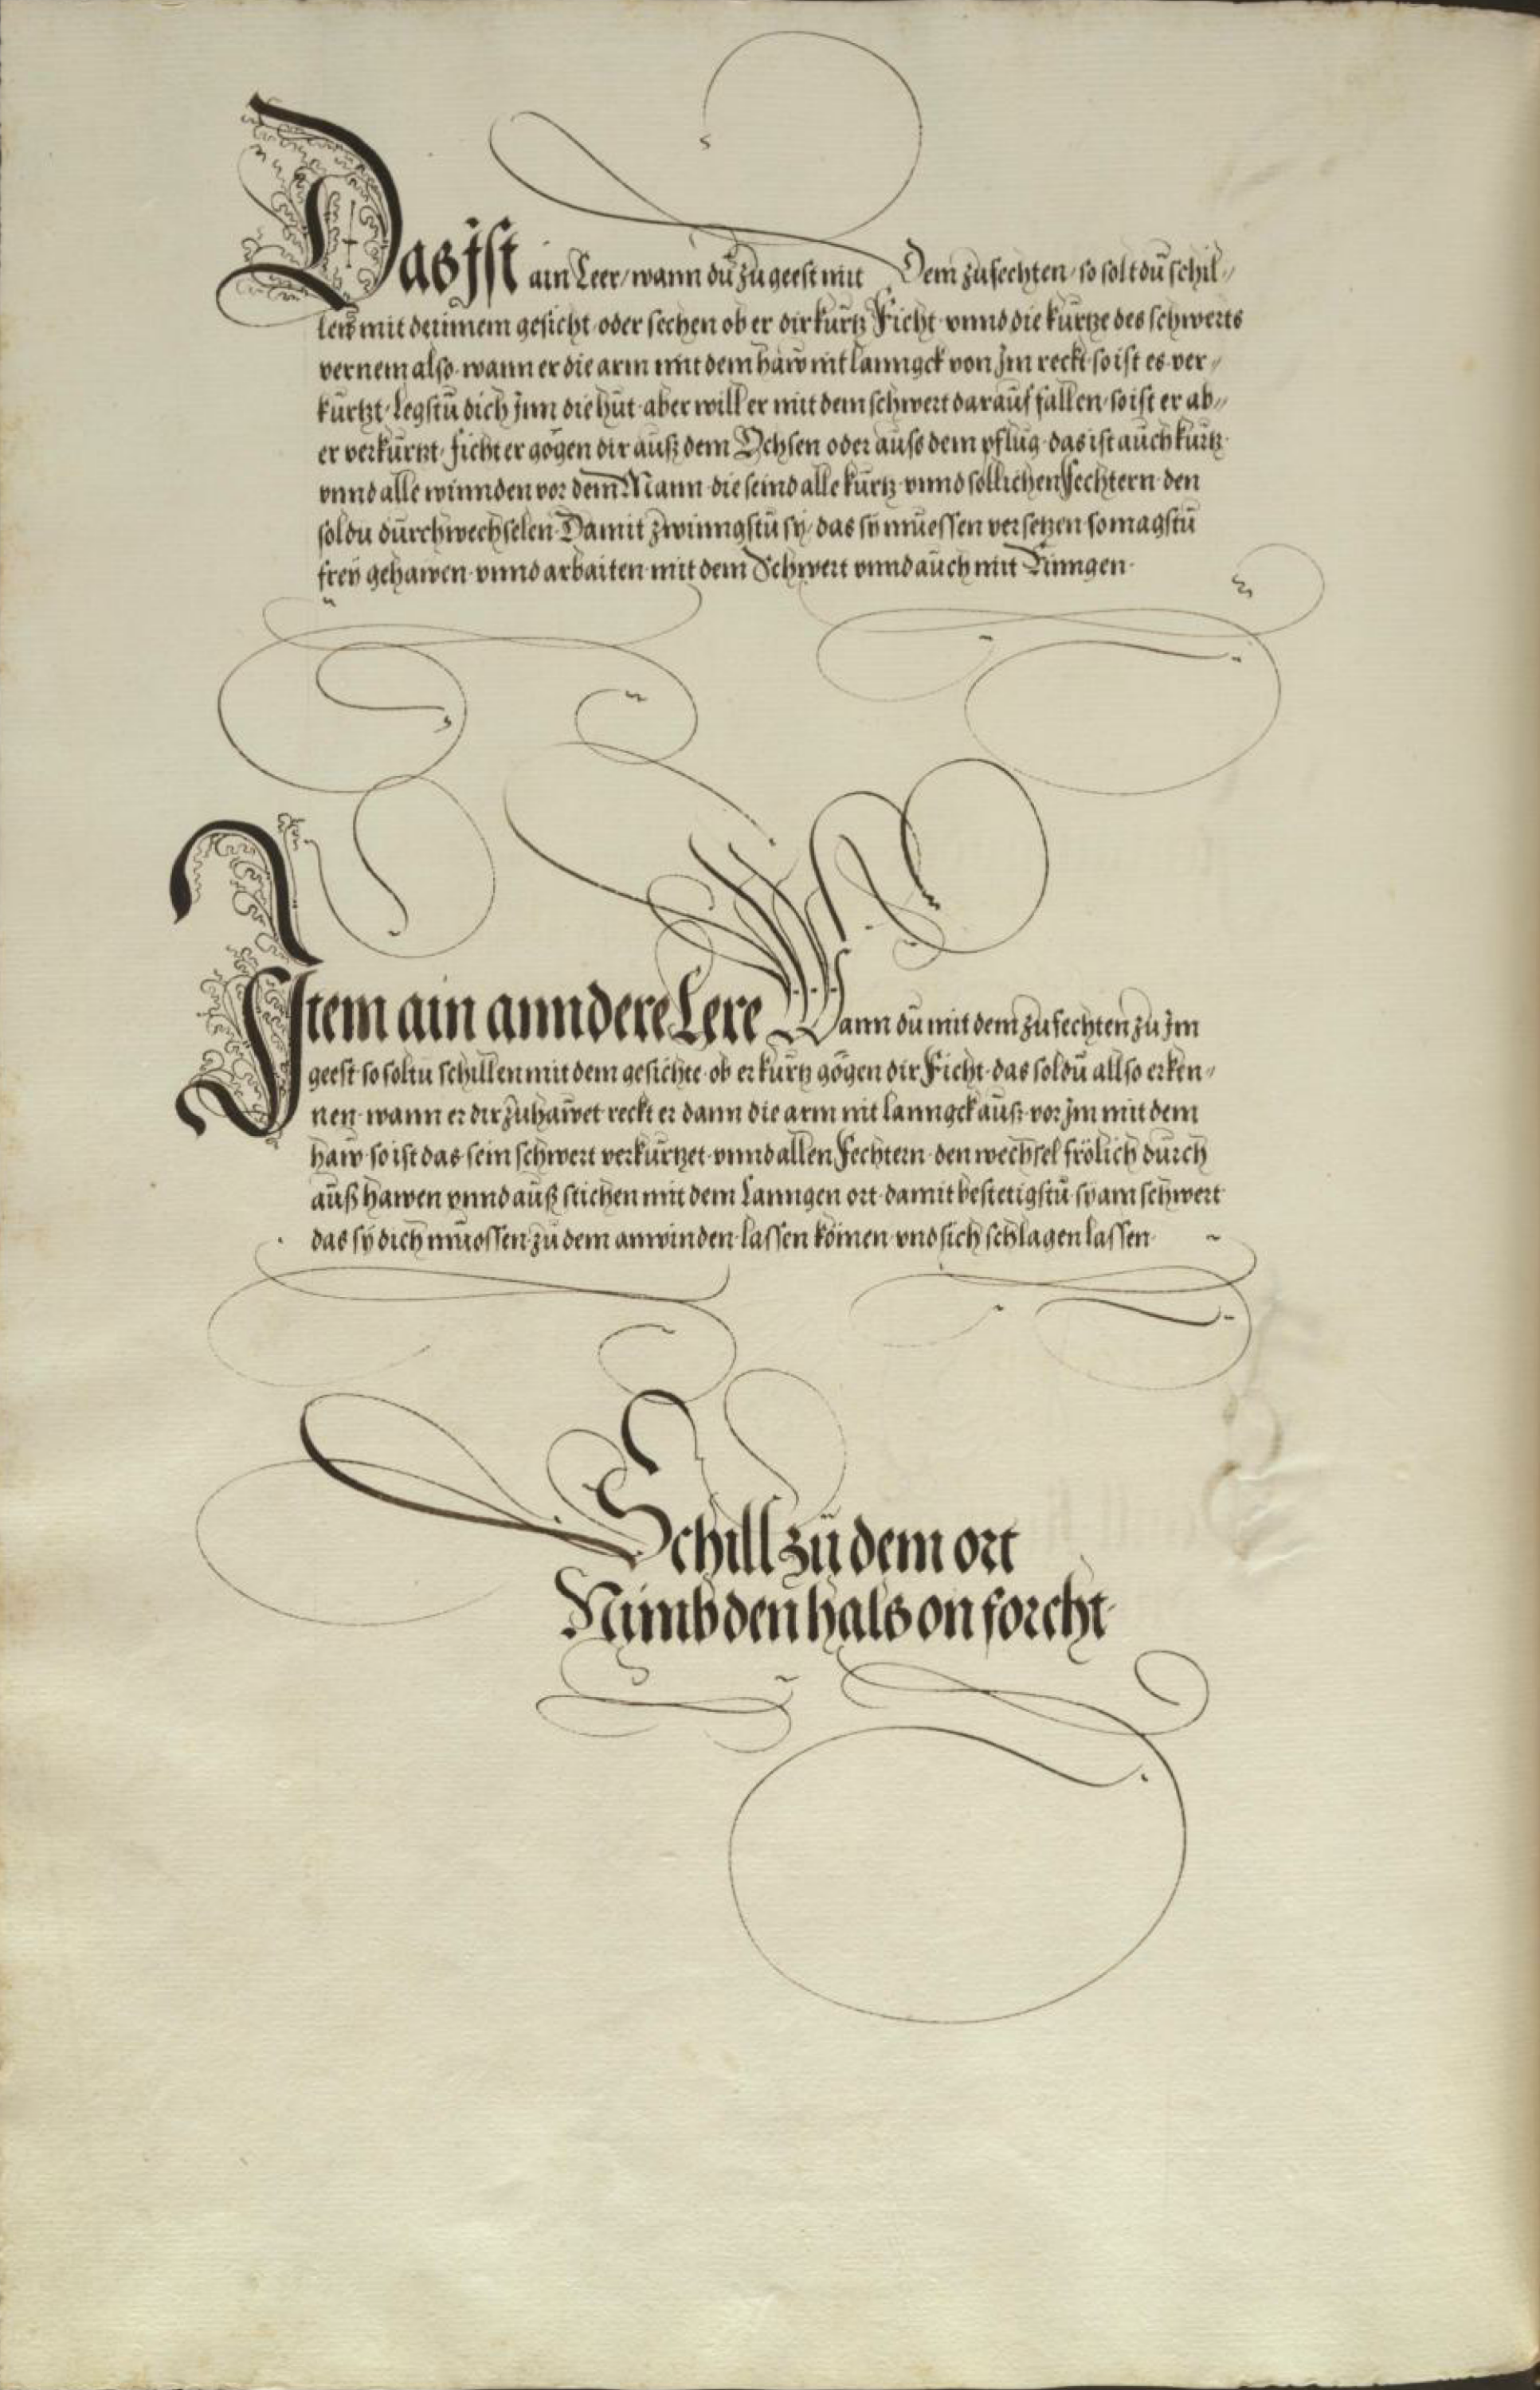 Das jst ain Leer, wann dū zū geest mit Dem zūfechten, so solt dū schil-
len mit deinnem gesicht, oder sechen ob er dir kurtz Ficht, vnnd die kurtze des schwerts
vernem also, wann er die arm mit dem haw nit lanngck von jm reckt, so ist es ver-
kürtzt, Legstū dich jnn die hūt, aber will er mit dem schwert darauf fallen, so ist er ab-
er verkurtzt, ficht er gögen dir auß dem Ochsen oder auss dem pflūg, das ist auch kurtz
vnnd alle winnden vor dem Mann die seind alle kurtz, vnnd sollichen Fechtern den
soldu dūrchwechselen, Damit zwinngstū sÿ, das sÿ muessen versetzen so magstū
freÿ gehawen vnnd arbaiten mit dem Schwert vnnd auch mit Rinngen.
Jtem ain anndere Lere Wann dū mit dem zūfechten zū jm
geest so soltu schillen mit dem gesichte, ob er kurtz gögen dir Ficht, das soldū allso erken-
nen, wann er dir zūhawet reckt er dann die arm nit lanngck auß vor jm mit dem
haw, so ist das sein schwert verkurtzet, vnnd allen Fechtern den wechsel frölich dūrch
auß hawen vnnd auß stichen mit dem Lanngen ort, damit bestetigstū sÿ am schwert
das sÿ dich muossen zū dem anwinden lassen komen vnd sich schlagen lassen
Schill zū dem ort
Nimb den hals on forcht